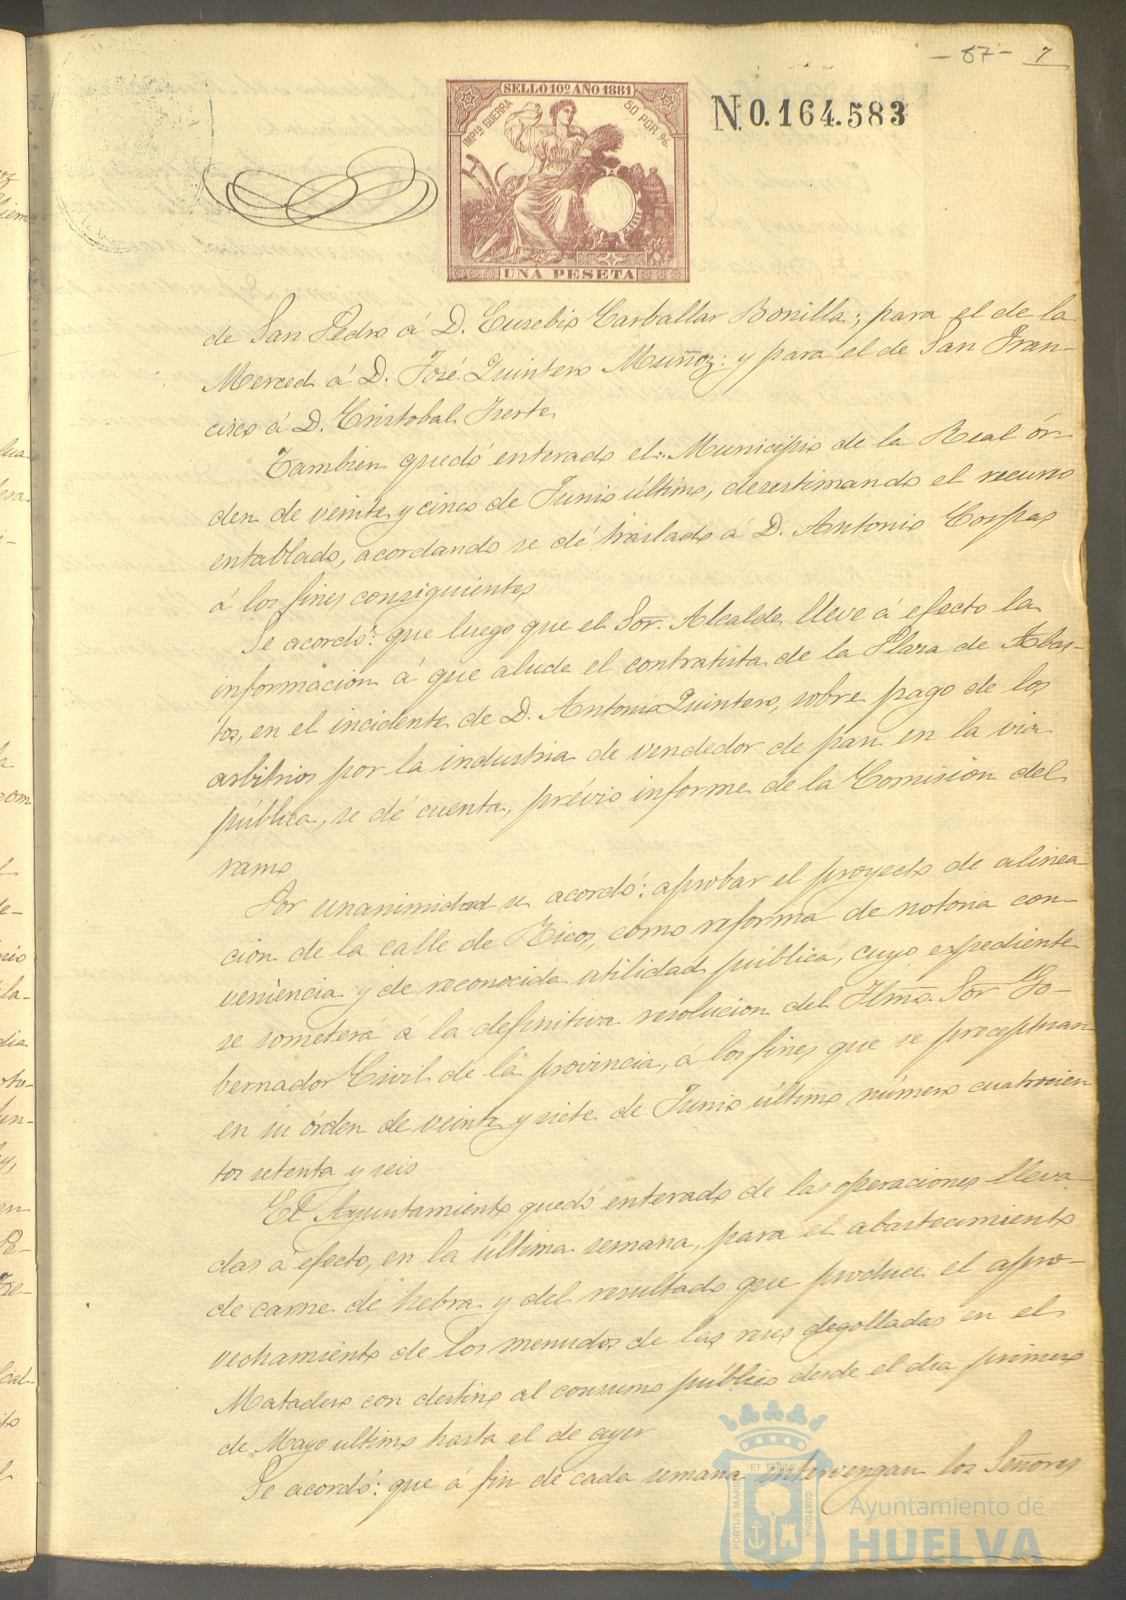 - 67 - 7
SELLO 10º AÑO 1881
IMPTO GUERRA
50 POR %
N.0.164.583
UNA PESETA
de San Pedro á D. Eusebio Carballar Bonilla; para el de la
Merced á D. José Quintero Muñoz: y para el de San Fran-
cisco á D. Cristobal Iserte
Tambien quedó enterado el Municipio de la Real ór-
den de veinte y cinco de Junio último, desestimando el recurso
entablado, acordando se dé traslado á D. Antonio Corpas
á los fines consiguientes
Se acordó: que luego que el Sor. Alcalde lleve á efecto la
informacion á que alude el contratista de la Plaza de Abas-
tos, en el incidente de D. Antonio Quintero, sobre pago de los
arbitrios por la industria de vendedor de pan en la via
pública, se dé cuenta, prévio informe de la Comision del
ramo
Por unanimidad se acordó: aprobar el proyecto de alinea
cion de la calle de Ricos, como reforma de notoria con-
veniencia y de reconocida utilidad pública, cuyo expediente
se someterá á la definitiva resolucion del Iltmo. Sor Go-
bernador Civil de la provincia, á los fines que se preceptuan
en su órden de veinte y siete de Junio último número cuatrocien
tos setenta y seis
El Ayuntamiento quedó enterado de las operaciones lleva-
das á efecto, en la última semana, para el abastecimiento
de carne de hebra y del resultado que produce el apro-
vechamiento de los menudos de las reses degolladas en el
Matadero con destino al consumo público desde el dia primero
de Mayo ultimo hasta el de ayer
Se acordó: que á fin de cada semana intervengan los Señores
PORTUS MARIS ET TERRE CUSTODIA
Ayuntamiento de
HUELVA